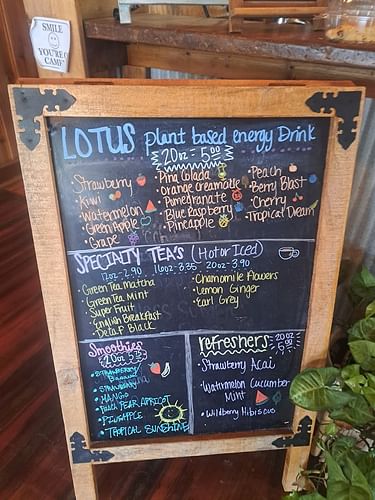 SMILE
YOU'RE ON
CAMERA
LOTUS plant based energy Drink
20oz = 5.00
• Strawberry
• Kiwi
• Watermelon
• Green Apple
• Grape
• Pina Colada
• Orange Creamsicle
• Pomegranate
• Blue Raspberry
• Pineapple
• Peach
• Berry Blast
• Cherry
• Tropical Dream
SPECIALTY TEA'S (Hot or Iced)
12oz - 2.90 16oz - 3.35 20oz - 3.90
• Green Tea Matcha
• Green Tea Mint
• Super Fruit
• English Breakfast
• Decaf Black
• Chamomile Flowers
• Lemon Ginger
• Earl Grey
Smoothies
20oz
• STRAWBERRY
Banana
• STRAWBERRY
• MANGO
• Peach PEAR APRICOT
• PINEAPPLE
• TROPICAL SUNSHINE
refreshers
20oz
5.00
• Strawberry Acai
• Watermelon Cucumber
Mint
• Wildberry Hibiscus